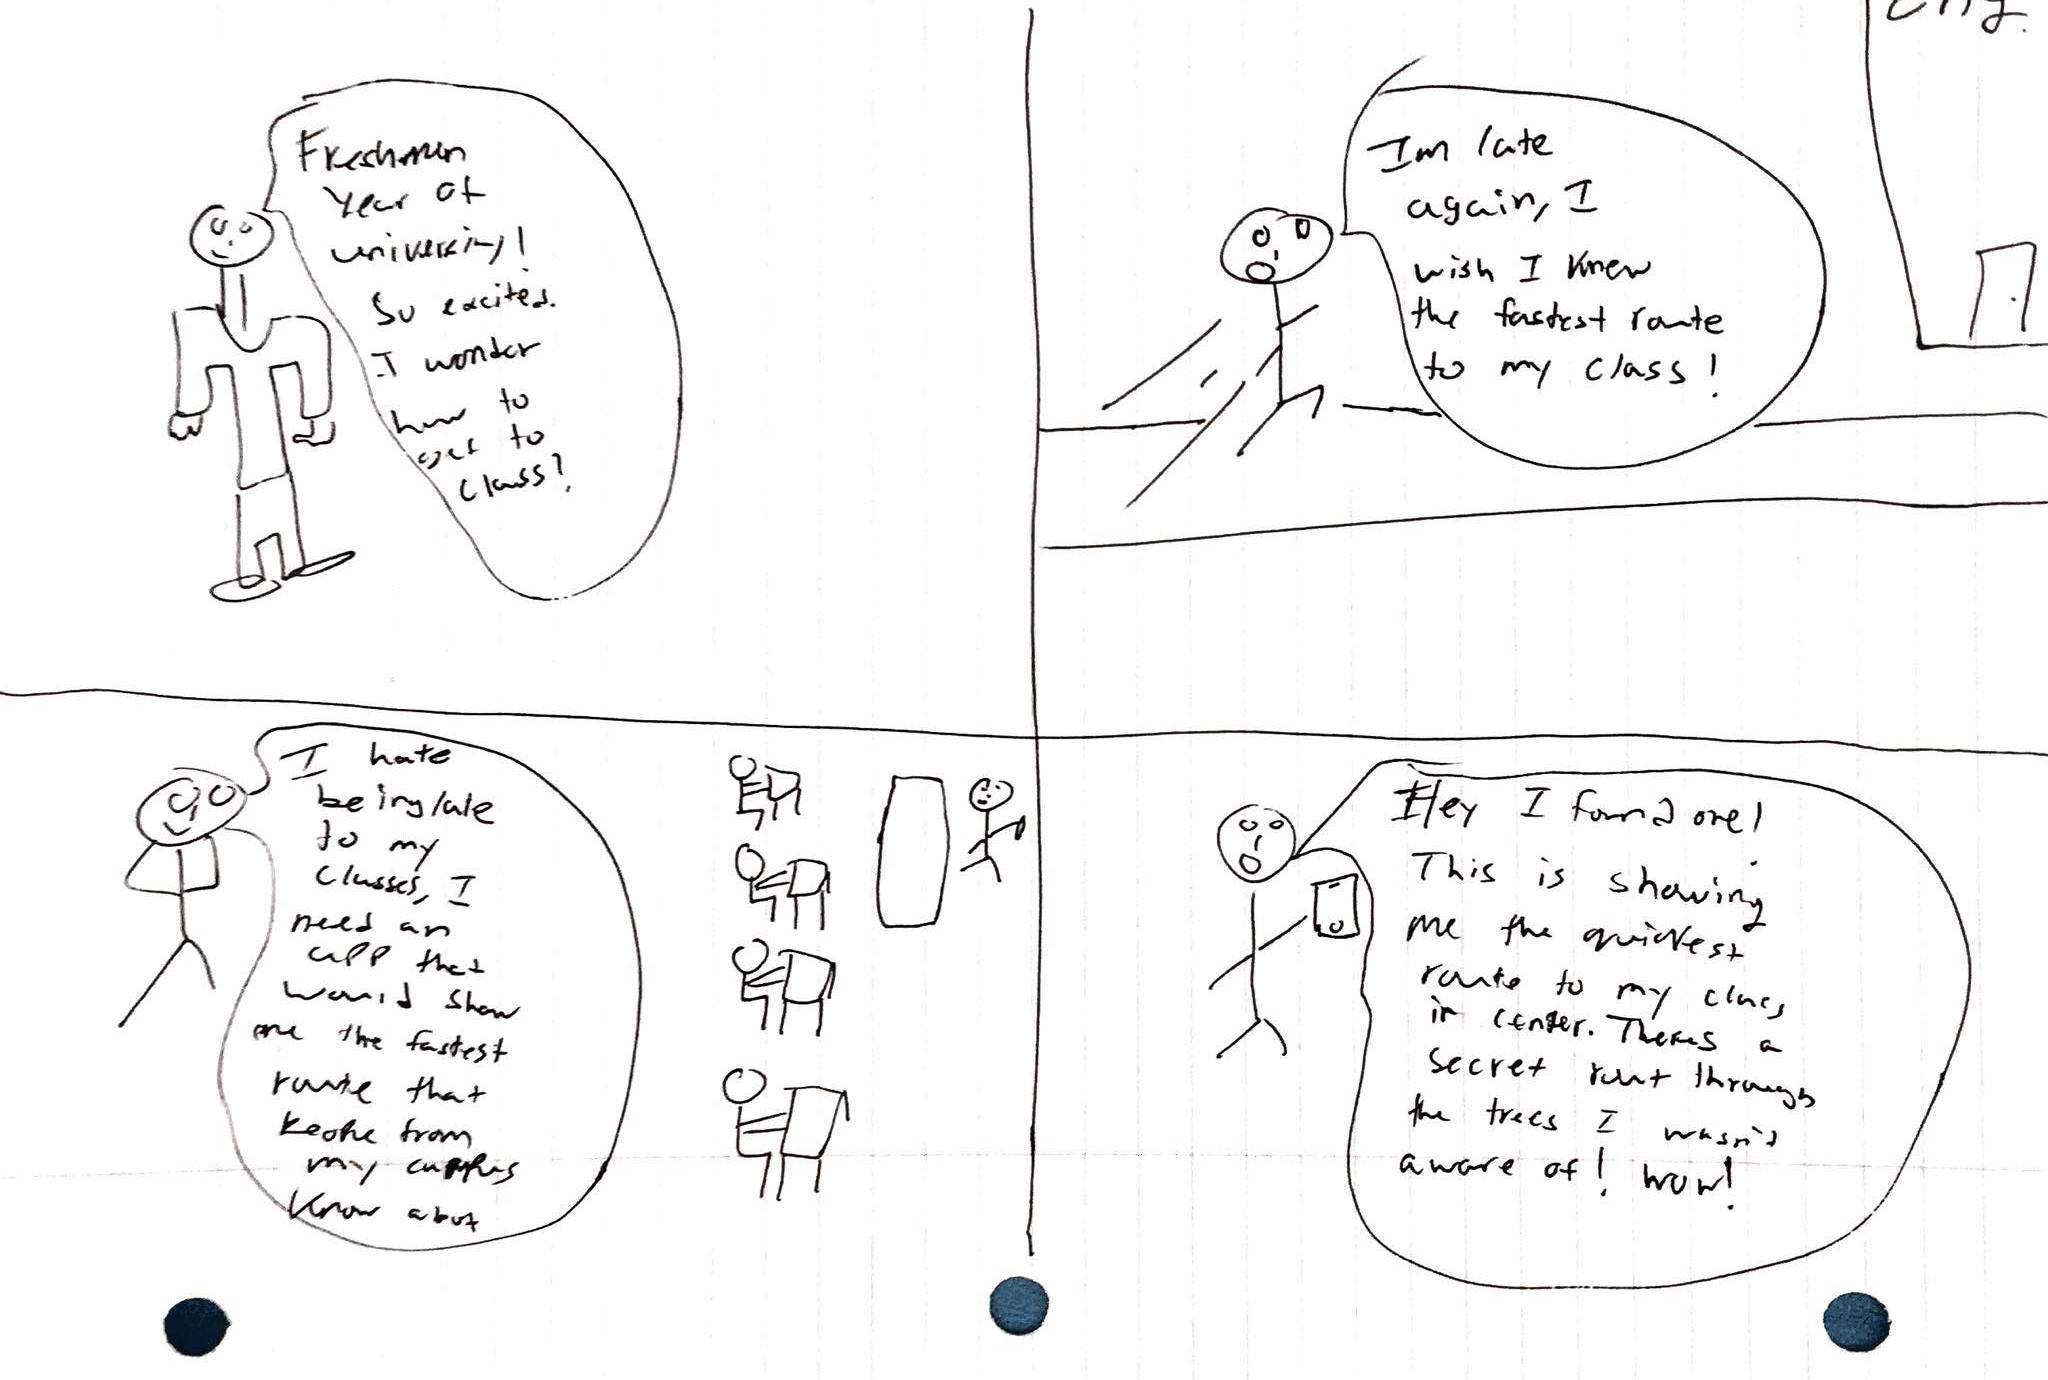 Freshman
Year of
university!
So excited.
I wonder
how to
get to
class?
Im late
again, I
wish I knew
the fastest route
to my class!
I hate
being late
to my
classes, I
need an
app that
would show
me the fastest
route that
my
know
Hey I found one!
This is showing
me the quickest
route to my class
in center. Theres a
secret rout through
the trees I wasn't
aware of! wow!